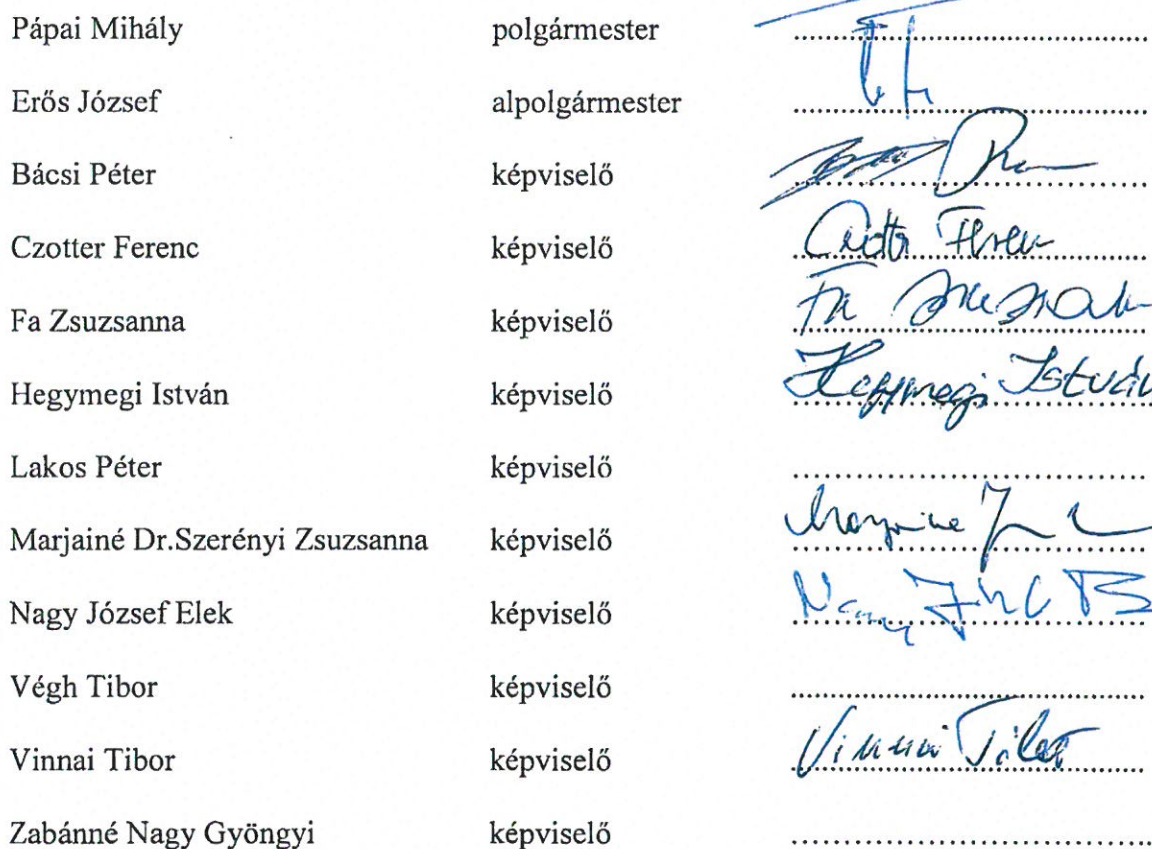 Pápai Mihály polgármester
Erős József alpolgármester
Bácsi Péter képviselő
Czotter Ferenc képviselő Ferenc
Fa Zsuzsanna képviselő Fa Zsuzsanna
Hegymegi István képviselő Hegymegi István
Lakos Péter képviselő
Marjainé Dr.Szerényi Zsuzsanna képviselő Marjainé
Nagy József Elek képviselő Nagy József
Végh Tibor képviselő
Vinnai Tibor képviselő Vinnai Tibor
Zabánné Nagy Gyöngyi képviselő